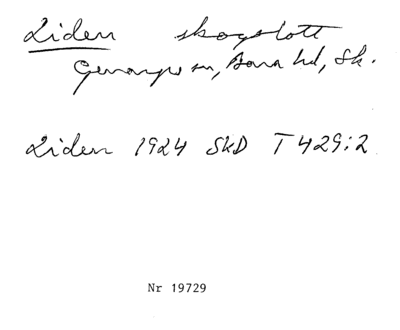 Liden skogslott
Genarps sn, Bara hd, Sk.
Liden 1924 SkD T429:2
Nr 19729